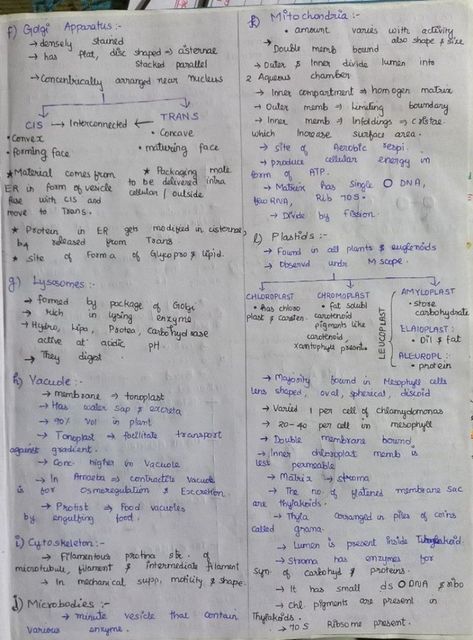 f) Golgi Apparatus :-
→ densely stained
→ has flat, disc shaped → cisternae
stacked parallel
→ Concentrically arranged near nucleus
CIS → Interconnected ← TRANS
• Convex
• Forming face
• Concave
• maturing face
★ Material comes from
ER in form of vesicle
fuse with CIS and
move to Trans.
★ Packaging mate
to be delivered intra
cellular / outside
★ Protein in ER gets modified in cisternae,
by released from Trans
★ site of Forma of Glycopro & lipid.
g) Lysosomes :-
→ formed by package of Golgi
→ rich in lysing enzyme
→ Hydro, Lipa, Protea, Carbohydrase
active at acidic pH.
→ They digest
h) Vacuole :-
→ membrane → tonoplast
→ Has water sap & excreta
→ 90% vol in plant
→ Tonoplast → facilitate transport
against gradient.
→ Conc. higher in vacuole
→ In Amoeba → contractile vacuole
is for Osmoregulation & Excretion.
→ Protist → Food vacuoles
by engulfing food.
i) Cytoskeleton :-
→ Filamentous protna str. of
microtubule, filament & intermediate filament
→ In mechanical supp, motility & shape.
j) Microbodies :-
→ minute vesicle that contain
various enzyme.
k) Mitochondria :-
• amount varies with activity
also shape & size
→ Double memb bound
→ Outer & Inner divide lumen into
2 Aqueous chamber
→ Inner compartment → homogen matrix
→ Outer memb → Limiting boundary
→ Inner memb → Infoldings → cristae.
which increase surface area.
→ site of Aerobic respi.
→ produce cellular energy in
form of ATP.
→ Matrix has single O DNA,
few RNA, Rib 70S.
→ Divide by fission.
l) Plastids :-
→ Found in all plants & euglenoids
→ Observed undr M scope.
CHLOROPLAST
• has chloro
plast & caroten.
CHROMOPLAST
• fat solubl
carotenoid
pigments like
carotenoid,
xanthophylls present.
LEUCOPLAST
AMYLOPLAST
• store
carbohydrate
ELAIOPLAST :
• Oil & fat
ALEUROPL :
• protein
→ Majority bound in Mesophyll cells
lens shaped, oval, spherical, discoid
→ Varied 1 per cell of chlamydomonas
→ 20-40 per cell in mesophyll
→ Double membrane bound
→ Inner chloroplast memb is
less permeable
→ Matrix → stroma
→ The no. of flatened membrane sac
are thylakoids.
→ Thyla arranged in piles of coins
called grana.
→ Lumen is present inside Thylakoid
→ Stroma has enzymes for
syn. of carbohyd & proteins.
→ It has small ds O DNA & ribo
→ chl. pigments are present in
Thylakoids.
→ 70 S Ribosome present.